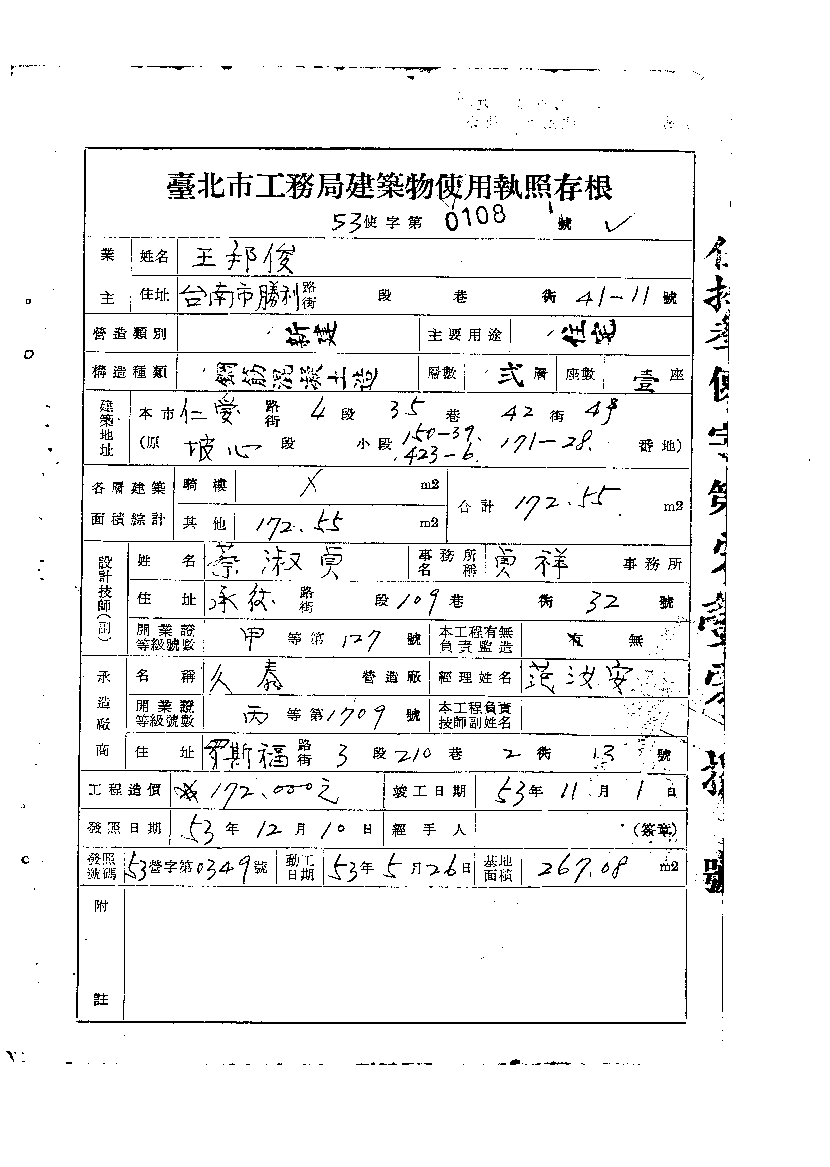 臺北市工務局建築物使用執照存根
53使字第 0108 號
業主 姓名 王邦俊
住址 台南市勝利路街 段 巷 街 41-11 號
營造類別 新建 主要用途 住宅
構造種類 鋼筋混凝土造 層數 弍 層 座數 壹 座
建築地址 本市 仁愛 路街 4 段 35 巷 42 街 4號
(原 坡心 段 小段 150-39. 423-6. 171-28. 番地)
各層建築面積綜計 騎樓 X m2 合計 172.55 m2
其他 172.55 m2
設計技師(副) 姓名 蔡淑貞 事務所名稱 貞祥 事務所
住址 承德 路街 段 109 巷 街 32 號
開業證等級號數 甲 等第 127 號 本工程有無負責監造 有 無
承造廠商 名稱 久泰 營造廠 經理姓名 范汝安
開業證等級號數 丙 等第 1709 號 本工程負責技師副姓名
住址 罗斯福 路街 3 段 210 巷 2 街 13 號
工程造價 172.000元 竣工日期 53年 11 月 1 日
發照日期 53 年 12 月 10 日 經手人 (簽章)
發照號碼 53營字第0349號 動工日期 53年 5 月 26日 基地面積 267.08 m2
附註